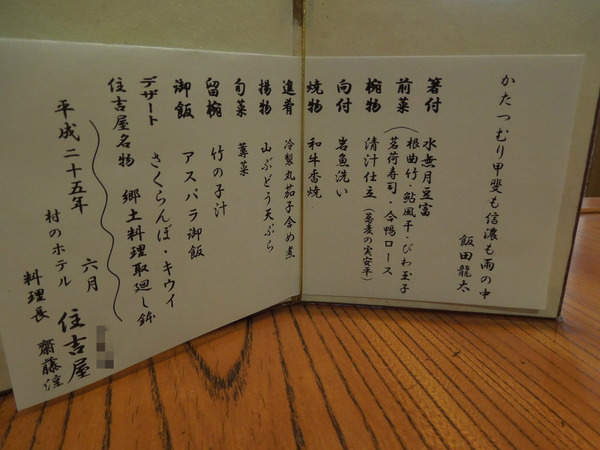 かたつむり甲斐も信濃も雨の中
飯田龍太
箸付　水無月豆富
前菜（根曲竹・鮎風干・びわ玉子
茗荷寿司・合鴨ロース
椀物　清汁仕立（蕎麦の実安平）
向付　岩魚洗い
焼物　和牛香焼
進肴　冷製丸茄子含め煮
揚物　山ぶどう天ぷら
旬菜　蓴菜
留椀　竹の子汁
御飯　アスパラ御飯
デザート　さくらんぼ・キウイ
住吉屋名物　郷土料理取廻し鉢
平成二十五年　六月
村のホテル　住吉屋
料理長　齋藤